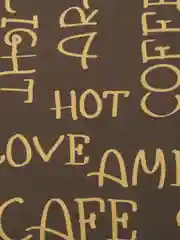 LIGHT
AR
COFFEE
HOT
LOVE
AM
CAFE